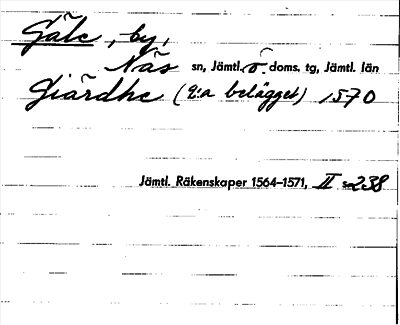 Gäle, by,
Näs sn, Jämtl. ö. doms. tg, Jämtl. län
Giärdhe (2:a belägget) 1570
Jämtl. Räkenskaper 1564–1571, II s. 238